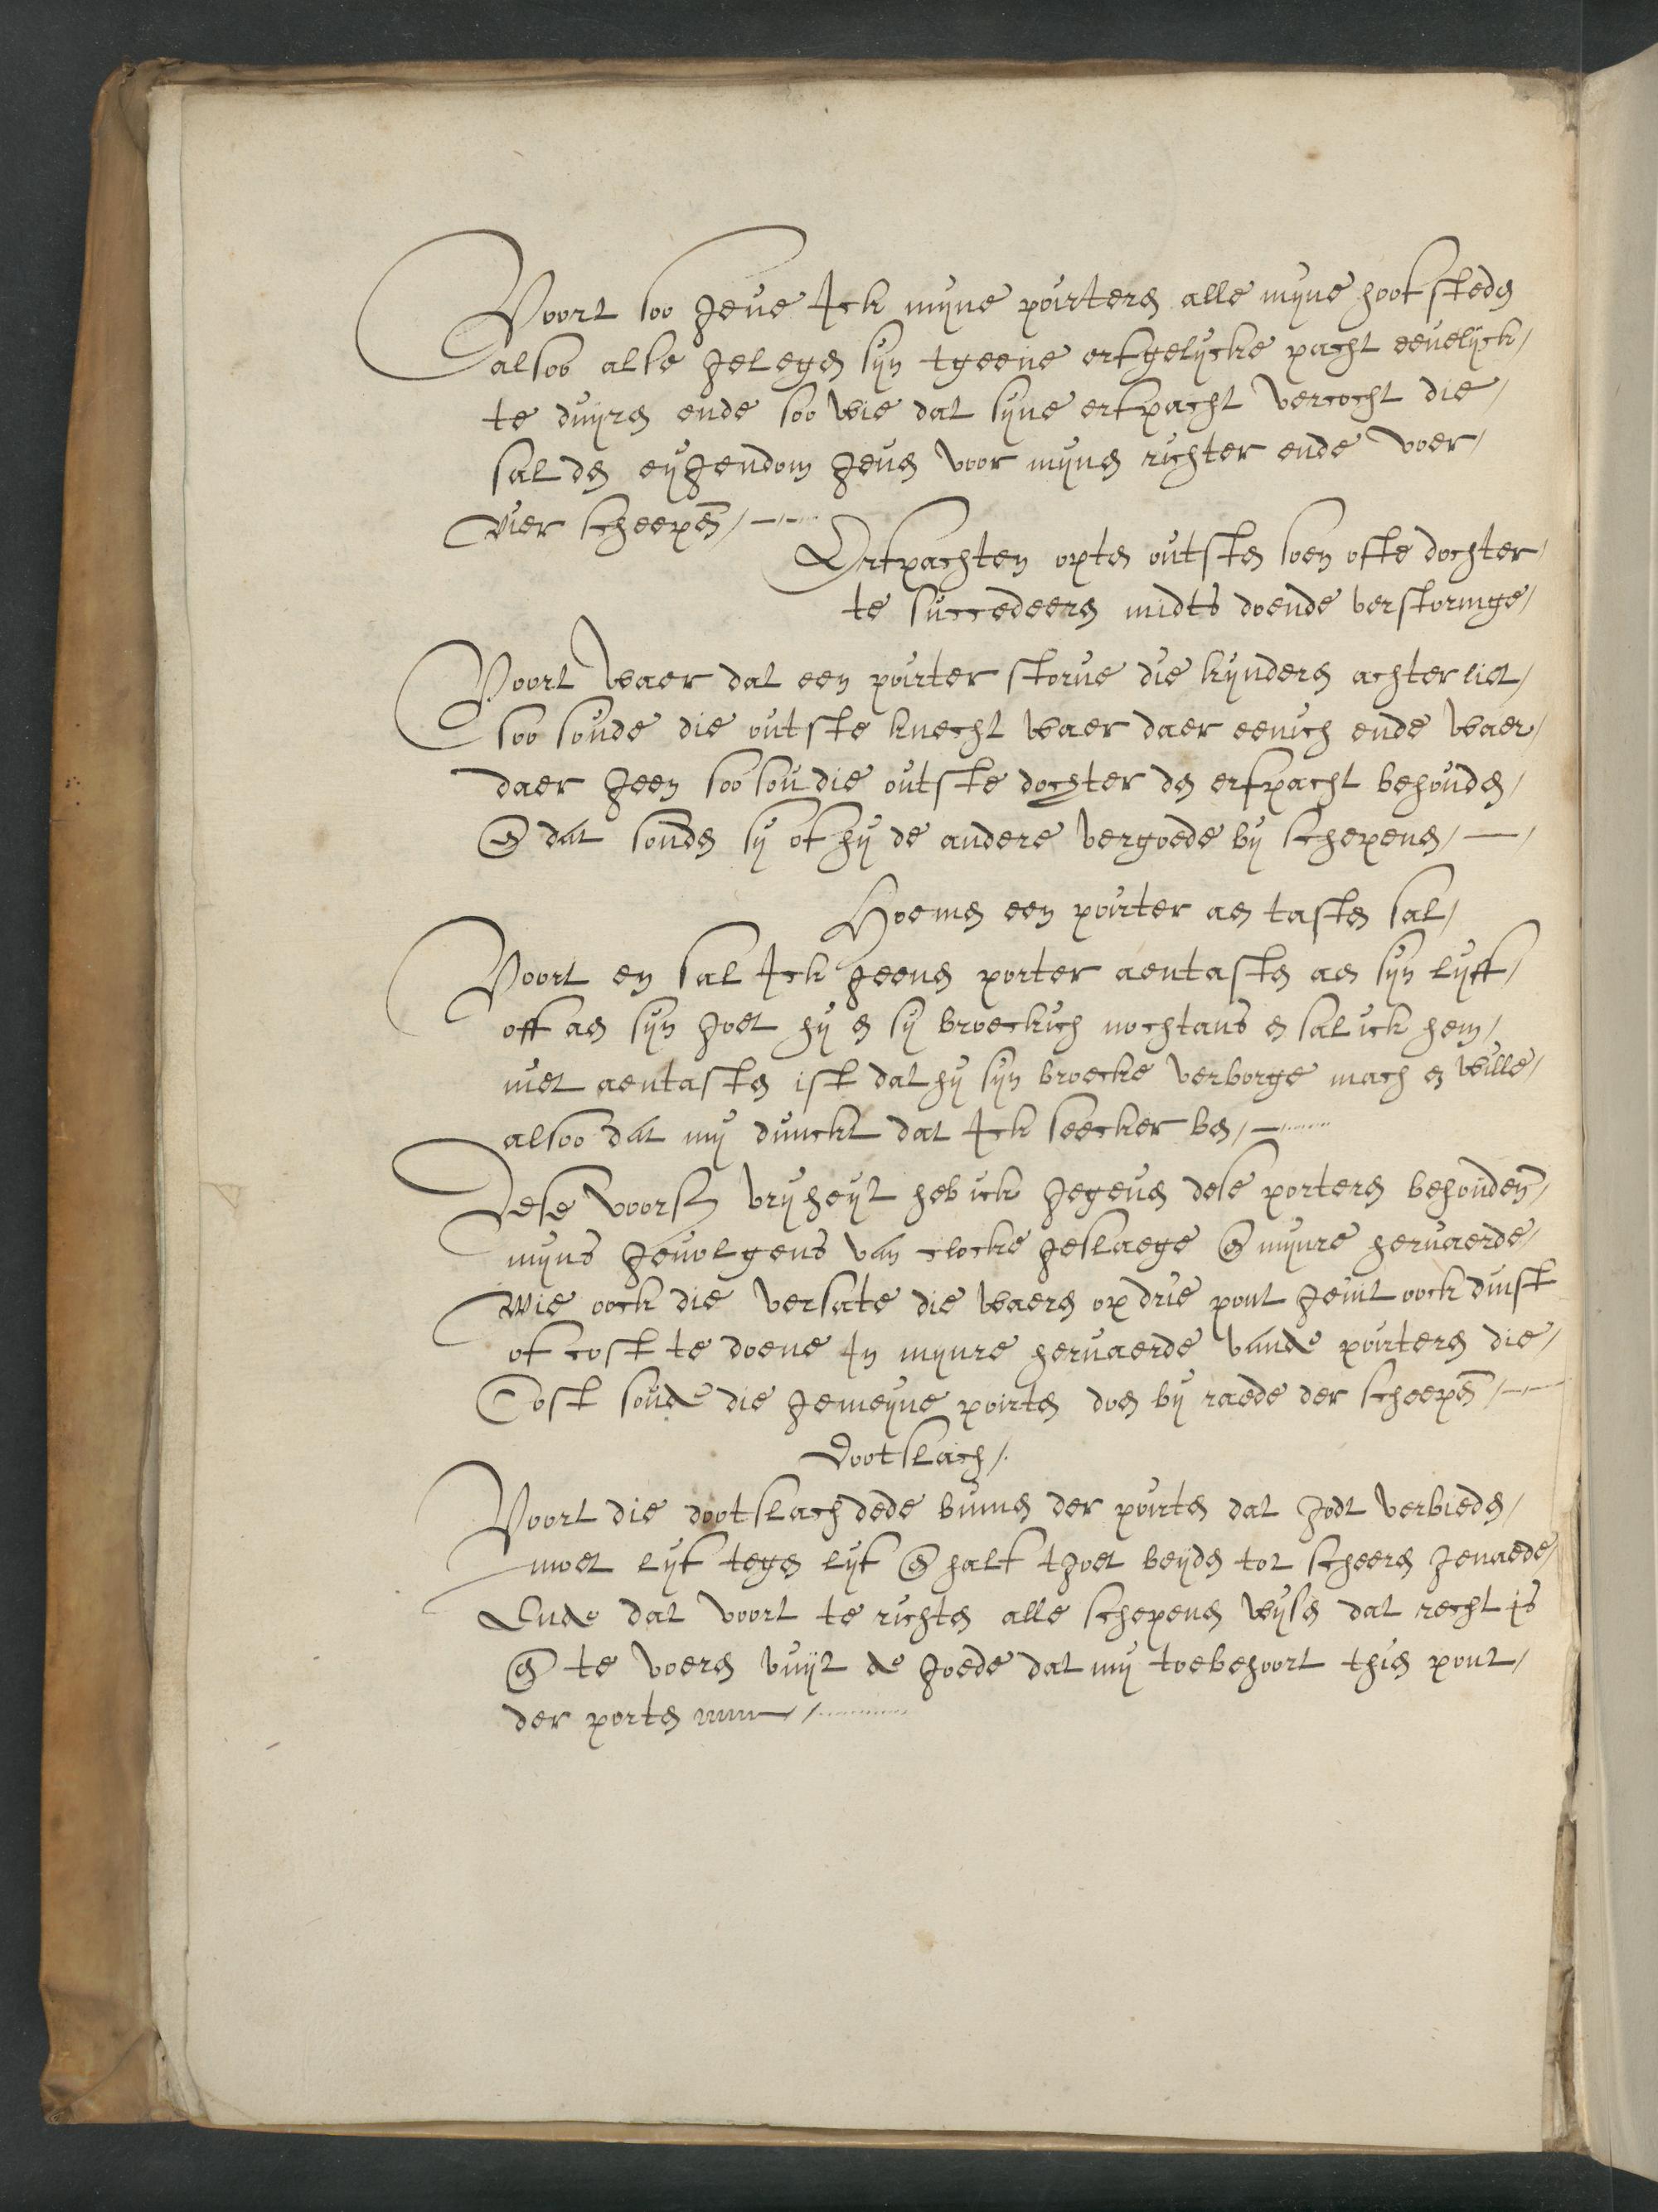 Voort soo geue Ick mijne poirters alle mijne hoofsteden
alsoo alse gelegen sijn tgeene erfgelijcke pacht eeuelijck,
te duijren ende soo wie dat sijne erfpacht vercocht die,
sal den eijgendom geuen voor mijnen richter ende voer,
vier scheepen, —
Erfpachten opten outsten soen ofte dochter,
te succedeeren midts doende verstoringe,
Voort waer dat een poirter storue die kijnderen achter liet,
soo soude die outste knecht waer daer eenich ende waer,
daer geen soo sou die outste dochter den erfpacht behouden,
en dat souden sij of hij de andere vergoede bij schepenen, —,
Hoemen een poirter aen tasten sal,
Voort en sal Ick geenen porter aentasten aen sijn lijff,
off aen sijn goet hij en sij broeckich nochtans en sal ick hem,
niet aentasten ist dat hij sijn broecke verborge mach en wille,
alsoo dat mij dunckt dat Ick seecker ben, —
Dese voors vrijheijt heb ick jegens dese porters behouden,
mijns geuolgens van clocke geslaege en mijnre heruaerde,
Wie oock die versate die waers op drie pont Jeint oock dinst
of cost te doene In mijnre heruaerde vande poirters die,
Cost soude die gemeijne poirten doen bij raede der scheepen, —
Dootslach,
Voort die dootslach dede binnen der poirten dat godt verbieden,
moet lijf tegen lijf en half tgoet beijden tot scheers genaede,
Ende dat voort te richten alle schepenen wijsen dat recht is
en te voeren vuijt de goede dat mij toebehoort thien pont,
der porten